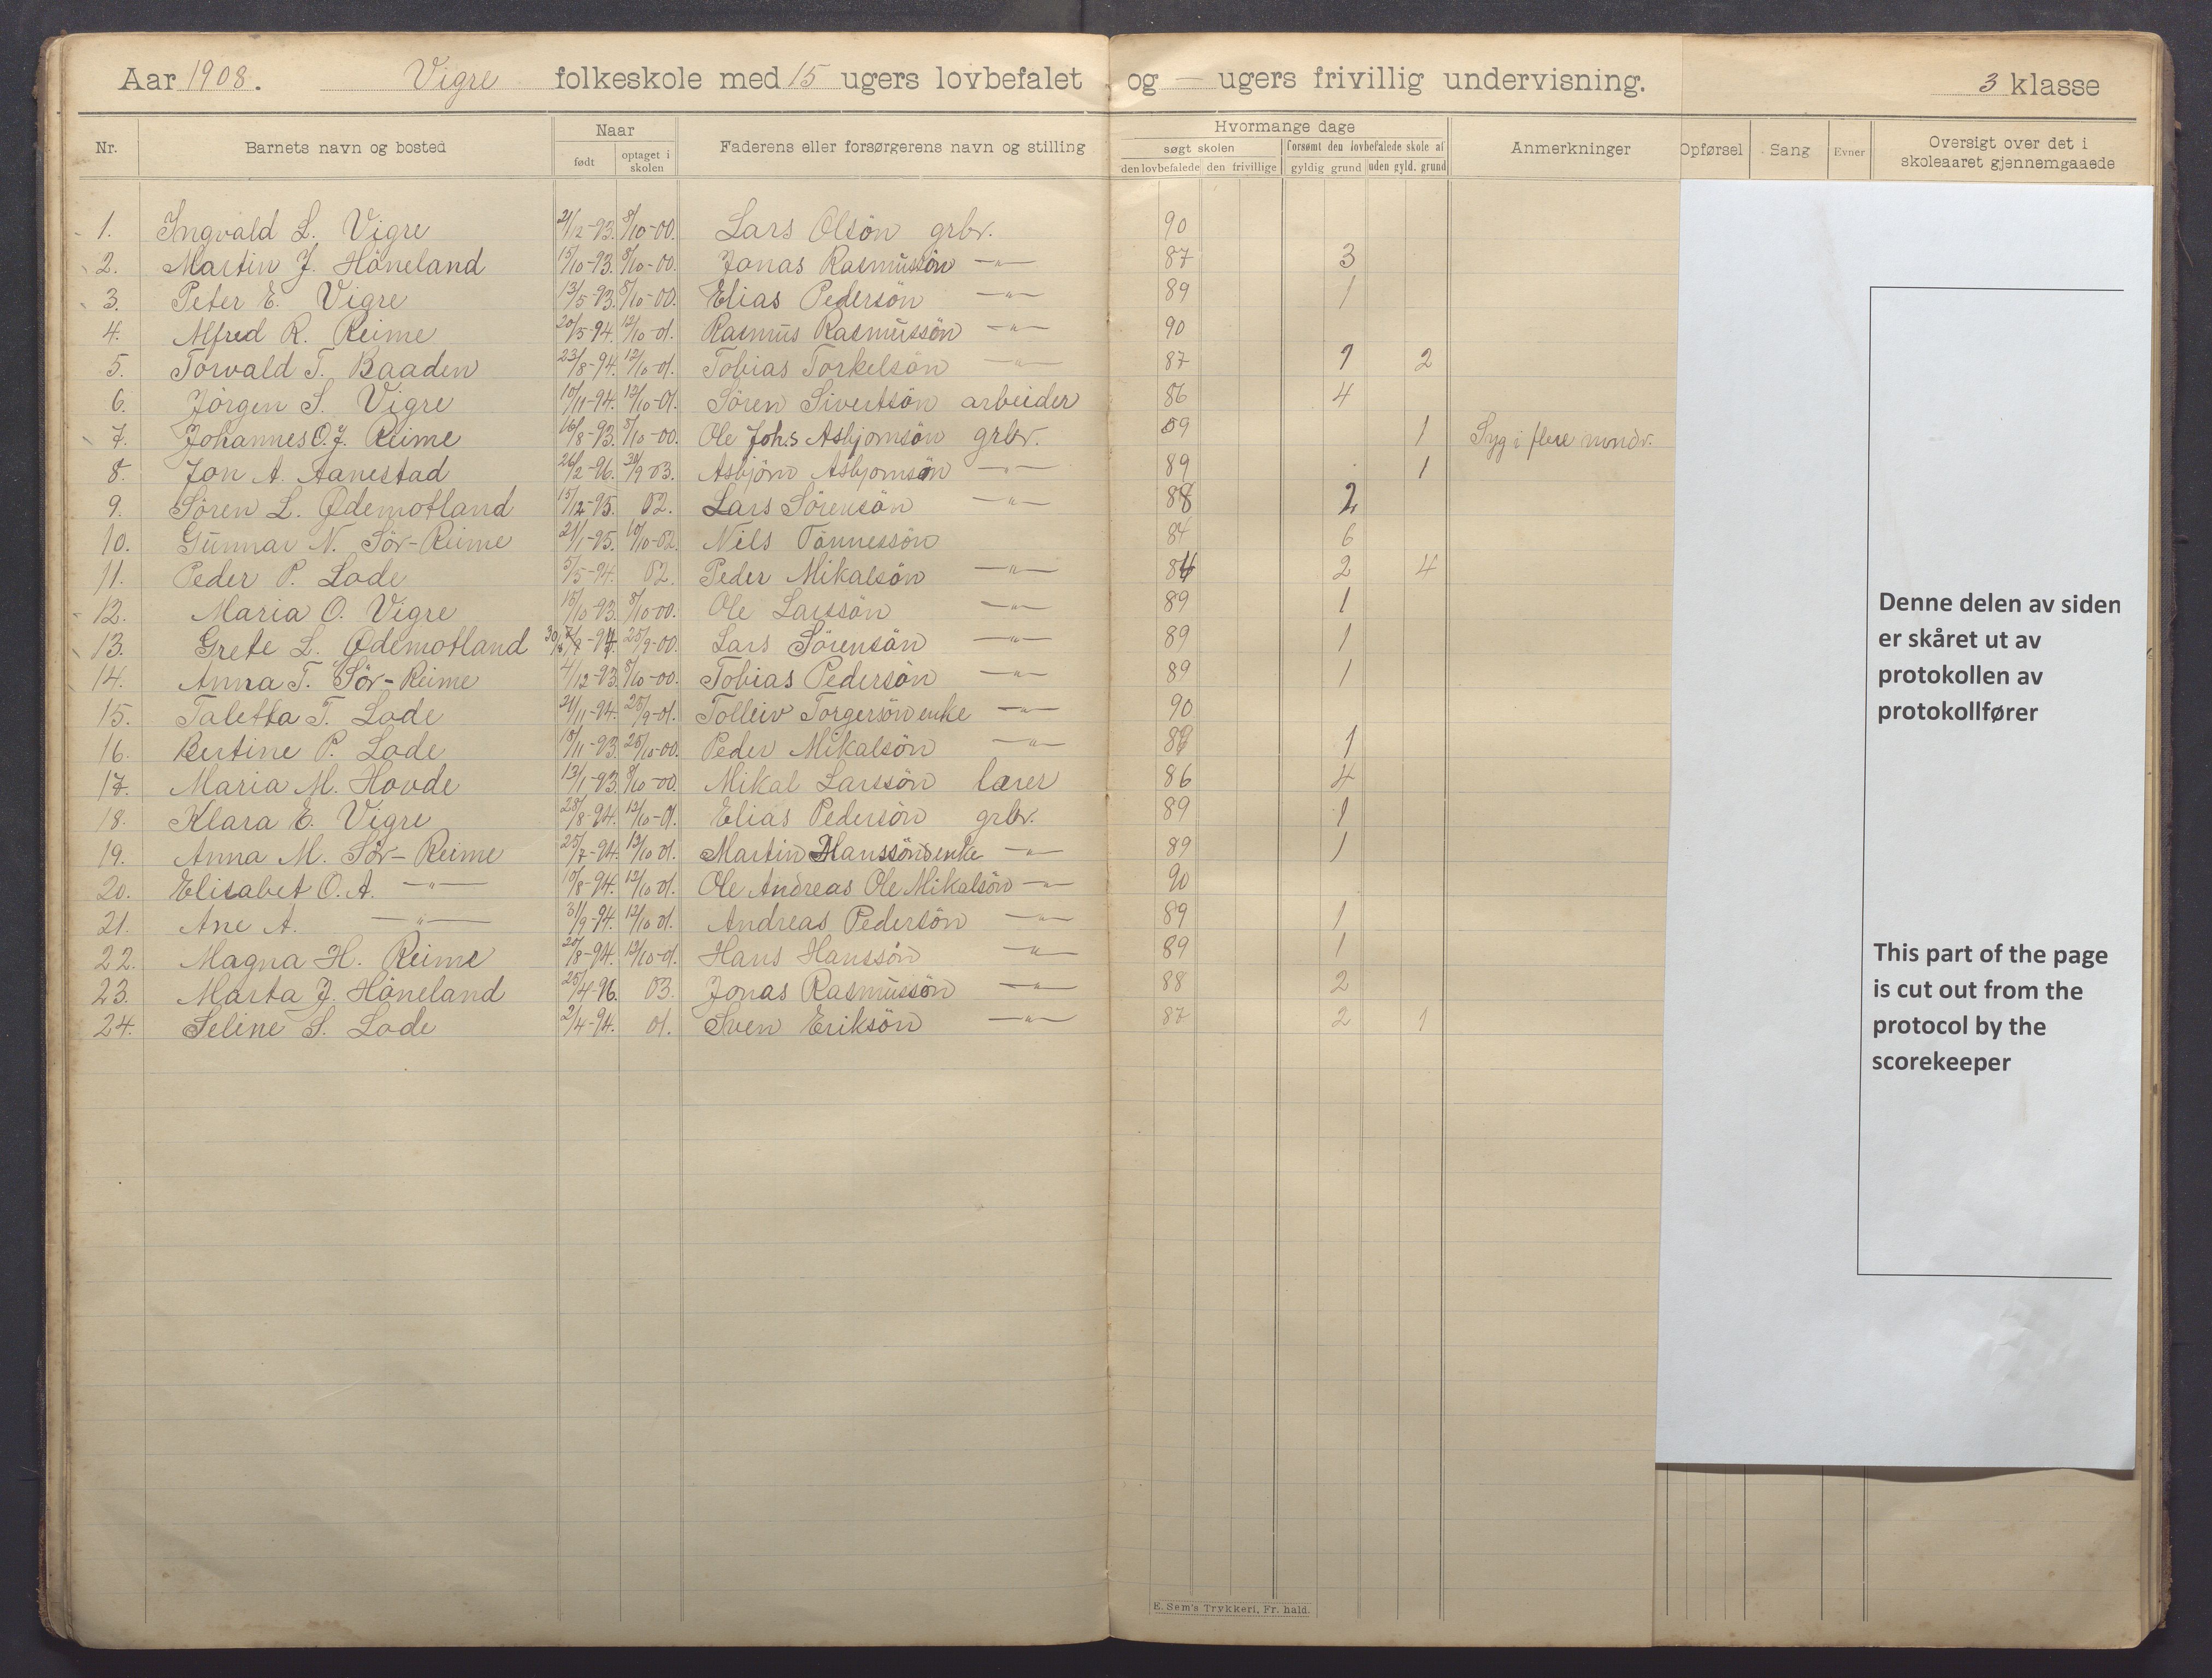 Aar 1908. Vigre folkeskole med 15 ugers lovbefalet og — ugers frivillig undervisning. 3 klasse
Nr. Barnets navn og bosted Naar født optaget i skolen Faderens eller forsørgerens navn og stilling Hvormange dage søgt skolen den lovbefalede den frivillige forsømt den lovbefalede skole af gyldig grund uden gyld. grund Anmerkninger Opførsel Sang Evner Oversigt over det i skoleaaret gjennemgaaede
1. Ingvald L. Vigre 21/12-93. 8/10-00. Lars Olsön grbr. 90
2. Martin J. Höneland 15/10-93. 8/10-00. Jonas Rasmussön —"— 87 3
3. Peter E. Vigre 13/5-93. 8/10-00. Elias Pedersön —"— 89 1
4. Alfred R. Reime 20/5-94. 12/10-01. Rasmus Rasmussön —"— 90
5. Torvald T. Baaden 23/8-94. 12/10-01. Tobias Torkelsön —"— 87 1 2
6. Jörgen S. Vigre 10/11-94. 12/10-01. Sören Sivertsön arbeider 86 4
7. Johannes O.J. Reime 16/8-93. 8/10-00. Ole Johs Asbjornsön grbr. 59 1 Syg i flere mndr.
8. Jon A. Aanestad 26/2-96. 30/9 03. Asbjörn Asbjornsön —"— 89 1
9. Sören L. Ødemotland 15/12-95. 02. Lars Sörensön —"— 88 2
10. Gunnar N. Sör-Reime 21/1-95. 10/10-02. Nils Tönnessön 84 6
11. Peder P. Lode 5/5-94. 02. Peder Mikalsön —"— 84 2 4
12. Maria O. Vigre 15/10-93. 8/10-00. Ole Larssön —"— 89 1
13. Grete L. Ødemotland 25/9-00. Lars Sörensön —"— 89 1
14. Anna T. Sör-Reime 4/12-93. 8/10-00. Tobias Pedersön —"— 89 1
15. Taletta T. Lode 21/11-94. 25/9-01. Tolleiv Torgersön enke —"— 90
16. Bertine P. Lode 18/11-93. 25/10-00. Peder Mikalsön —"— 89 1
17. Maria M. Hovde 13/1-93. 8/10-00. Mikal Larssön lærer 86 4
18. Klara E. Vigre 28/8-94. 12/10-01. Elias Pedersön grbr. 89 1
19. Anna M. Sör-Reime 25/7-94. 13/10 01. Martin Hanssöns enke —"— 89 1
20. Elisabet O. A. —"— 10/8-94. 12/10 01. Ole Andreas Ole Mikalsön —"— 90
21. Ane A. —"— 31/9-94. 12/10 01. Andreas Pedersön —"— 89 1
22. Magna H. Reime 20/8-94. 12/10-01. Hans Hanssön —"— 89 1
23. Marta J. Höneland 25/4-96. 03. Jonas Rasmussön —"— 88 2
24. Seline S. Lode 2/4-94. 01. Sven Eriksön —"— 87 2 1
Denne delen av siden
er skåret ut av
protokollen av
protokollfører
This part of the page
is cut out from the
protocol by the
scorekeeper
E. Sem's Trykkeri, Fr. hald.